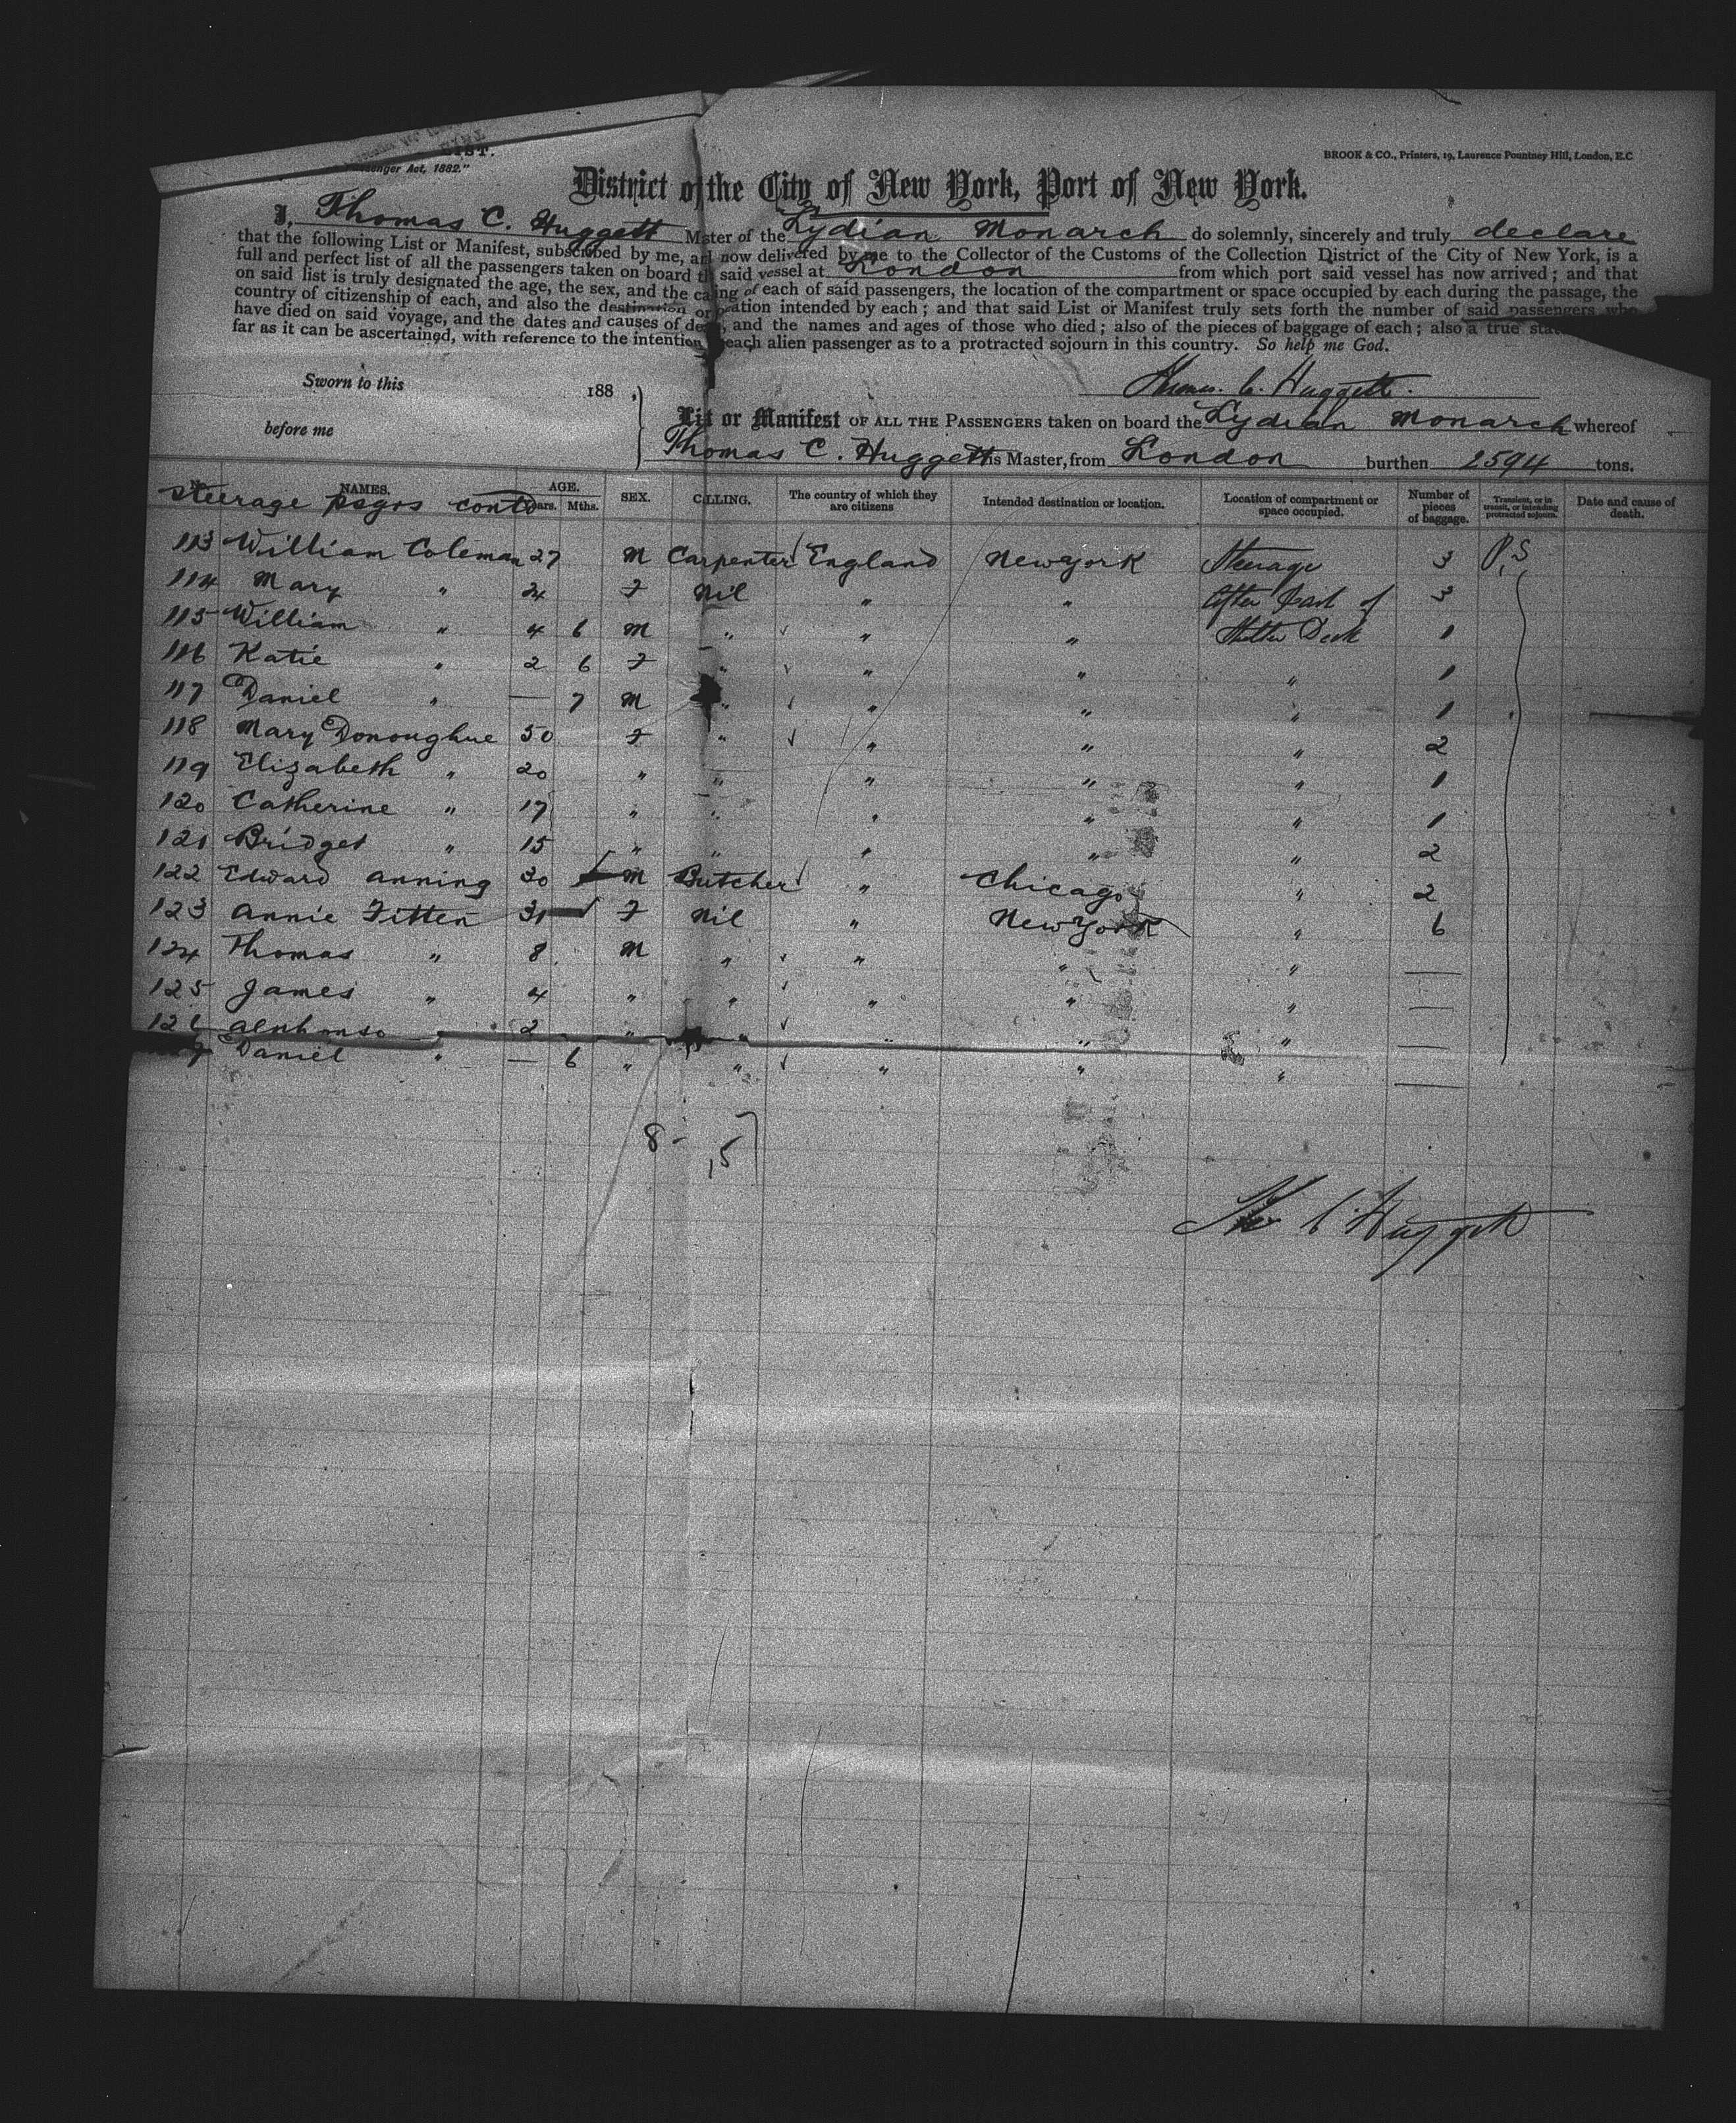 LIST.
BROOK & CO., Printers, 19, Laurence Pountney Hill, London, E.C
senger Act, 1882."
District of the City of New York, Port of New York.
I, Thomas C. Huggett Master of the Lydian Monarch do solemnly, sincerely and truly declare
that the following List or Manifest, subscribed by me, and now delivered by me to the Collector of the Customs of the Collection District of the City of New York, is a
full and perfect list of all the passengers taken on board the said vessel at London from which port said vessel has now arrived; and that
on said list is truly designated the age, the sex, and the calling of each of said passengers, the location of the compartment or space occupied by each during the passage, the
country of citizenship of each, and also the destination or location intended by each; and that said List or Manifest truly sets forth the number of said passengers who
have died on said voyage, and the dates and causes of death, and the names and ages of those who died; also of the pieces of baggage of each; also a true state
far as it can be ascertained, with reference to the intention each alien passenger as to a protracted sojourn in this country. So help me God.
Sworn to this 188 , Thomas C. Huggett.
before me
List or Manifest OF ALL THE PASSENGERS taken on board the Lydian Monarch whereof
Thomas C. Huggett is Master, from London burthen 2594 tons.
NAMES. AGE. SEX. CALLING. The country of which they are citizens Intended destination or location. Location of compartment or space occupied. Number of pieces of baggage. Transient, or in transit, or intending protracted sojourn. Date and cause of death.
Steerage psgrs contd Years. Mths.
113 William Coleman 27 M Carpenter England New York Steerage 3 P.S
114 Mary " 24 F Nil " " After Part of 3
115 William " 4 6 M " " " Shelter Deck 1
116 Katie " 2 6 F " " " " 1
117 Daniel " — 7 M " " " " 1
118 Mary Donoughue 50 F " " " " 2
119 Elizabeth " 20 " " " " " 1
120 Catherine " 17 " " " " " 1
121 Bridget " 15 " " " " " 2
122 Edward Anning 30 M Butcher " Chicago " 2
123 Annie Fitten 31 F Nil " New York " 6
124 Thomas " 8 M " " " " —
125 James " 4 " " " " " —
126 Alphonso 2 " " " " —
7 Daniel " — 6 " " " " " —
8 - 15
Thos C Huggett